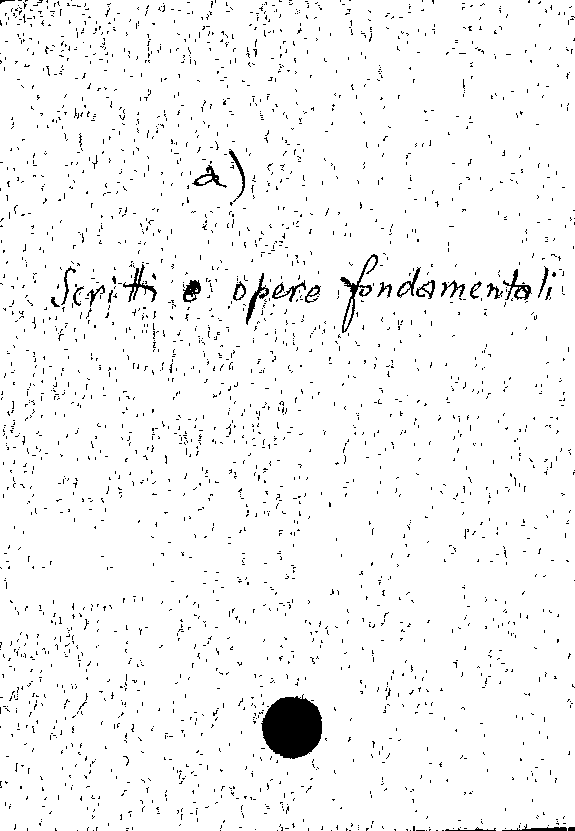 a)
Scritti e opere fondamentali